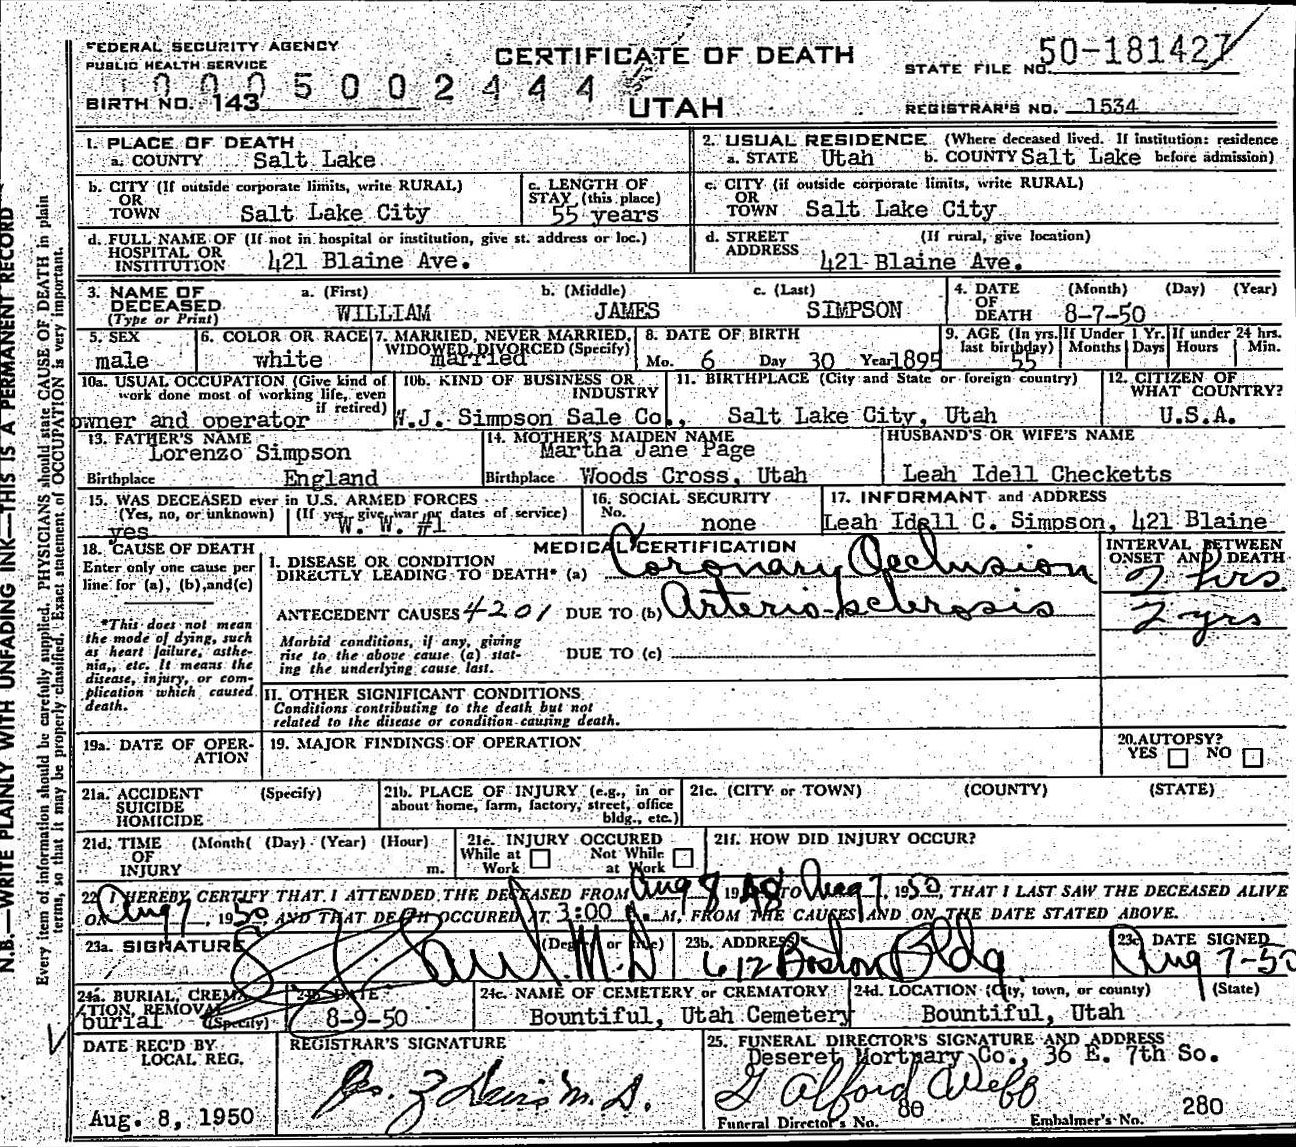 FEDERAL SECURITY AGENCY
PUBLIC HEALTH SERVICE
CERTIFICATE OF DEATH
STATE FILE NO. 50-181427
0005002444
BIRTH NO. 143
UTAH
REGISTRAR'S NO. 1534
1. PLACE OF DEATH
a. COUNTY Salt Lake
2. USUAL RESIDENCE (Where deceased lived. If institution: residence
a. STATE Utah b. COUNTY Salt Lake before admission)
b. CITY (If outside corporate limits, write RURAL)
OR
TOWN Salt Lake City
c. LENGTH OF
STAY (this place)
55 years
c. CITY (if outside corporate limits, write RURAL)
OR
TOWN Salt Lake City
d. FULL NAME OF (If not in hospital or institution, give st. address or loc.)
HOSPITAL OR
INSTITUTION 421 Blaine Ave.
d. STREET (If rural, give location)
ADDRESS
421 Blaine Ave.
3. NAME OF
DECEASED
(Type or Print)
a. (First) b. (Middle) c. (Last)
WILLIAM JAMES SIMPSON
4. DATE (Month) (Day) (Year)
OF
DEATH 8-7-50
5. SEX
male
6. COLOR OR RACE
white
7. MARRIED, NEVER MARRIED,
WIDOWED, DIVORCED (Specify)
married
8. DATE OF BIRTH
Mo. 6 Day 30 Year 1895
9. AGE (In yrs.
last birthday)
55
If Under 1 Yr.
Months Days
If under 24 hrs.
Hours Min.
10a. USUAL OCCUPATION (Give kind of
work done most of working life, even
if retired)
owner and operator
10b. KIND OF BUSINESS OR
INDUSTRY
W.J. Simpson Sale Co.,
11. BIRTHPLACE (City and State or foreign country)
Salt Lake City, Utah
12. CITIZEN OF
WHAT COUNTRY?
U.S.A.
13. FATHER'S NAME
Lorenzo Simpson
Birthplace England
14. MOTHER'S MAIDEN NAME
Martha Jane Page
Birthplace Woods Cross, Utah
HUSBAND'S OR WIFE'S NAME
Leah Idell Checketts
15. WAS DECEASED ever in U.S. ARMED FORCES
(Yes, no, or unknown) (If yes, give war or dates of service)
yes W. W. #1
16. SOCIAL SECURITY
No.
none
17. INFORMANT and ADDRESS
Leah Idell C. Simpson, 421 Blaine
18. CAUSE OF DEATH
Enter only one cause per
line for (a), (b), and (c)
*This does not mean
the mode of dying, such
as heart failure, asthe-
nia,, etc. It means the
disease, injury, or com-
plication which caused
death.
MEDICAL CERTIFICATION
I. DISEASE OR CONDITION
DIRECTLY LEADING TO DEATH* (a) Coronary Occlusion
ANTECEDENT CAUSES 4201 DUE TO (b) Arterio-sclerosis
Morbid conditions, if any, giving
rise to the above cause (a) stat-
ing the underlying cause last.
DUE TO (c)
INTERVAL BETWEEN
ONSET AND DEATH
2 hrs
2 yrs
II. OTHER SIGNIFICANT CONDITIONS
Conditions contributing to the death but not
related to the disease or condition causing death.
19a. DATE OF OPER-
ATION
19. MAJOR FINDINGS OF OPERATION
20. AUTOPSY?
YES NO
21a. ACCIDENT (Specify)
SUICIDE
HOMICIDE
21b. PLACE OF INJURY (e.g., in or
about home, farm, factory, street, office
bldg., etc.)
21c. (CITY or TOWN) (COUNTY) (STATE)
21d. TIME (Month( (Day) (Year) (Hour)
OF
INJURY m.
21e. INJURY OCCURED
While at Not While
Work at Work
21f. HOW DID INJURY OCCUR?
22. I HEREBY CERTIFY THAT I ATTENDED THE DECEASED FROM Aug 8 1948 TO Aug 7, 1950 THAT I LAST SAW THE DECEASED ALIVE
ON Aug 7, 1950 AND THAT DEATH OCCURED AT 3:00 M. FROM THE CAUSES AND ON THE DATE STATED ABOVE.
23a. SIGNATURE (Degree or title) M.D
23b. ADDRESS
612 Boston Bldg
23c. DATE SIGNED
Aug 7-50
24a. BURIAL, CREMA-
TION, REMOVAL
burial (Specify)
24b. DATE
8-9-50
24c. NAME OF CEMETERY or CREMATORY
Bountiful, Utah Cemetery
24d. LOCATION (City, town, or county) (State)
Bountiful, Utah
DATE REC'D BY
LOCAL REG.
Aug. 8, 1950
REGISTRAR'S SIGNATURE
25. FUNERAL DIRECTOR'S SIGNATURE AND ADDRESS
Deseret Mortuary Co., 36 E. 7th So.
Alford Webb
Funeral Director's No. 80 Embalmer's No. 280
N.B.—WRITE PLAINLY WITH UNFADING INK—THIS IS A PERMANENT RECORD
Every item of information should be carefully supplied. PHYSICIANS should state CAUSE OF DEATH in plain
terms, so that it may be properly classified. Exact statement of OCCUPATION is very important.